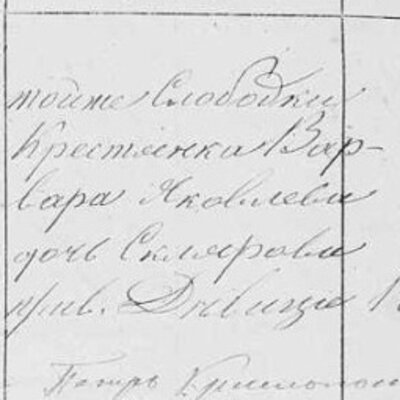 тойже Слободки
Крестянка Вар-
вара Яковлева
дочь Склярова
прив. Девица
Петръ